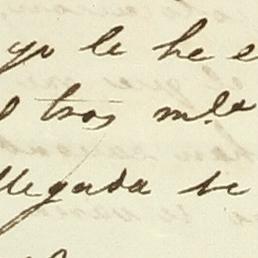 yo le he e
tros m.a
llegada se